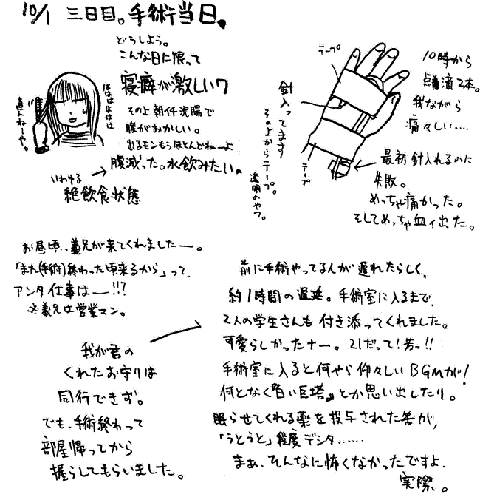 10/1 三日目。手術当日。
どうしよう。
こんな日に限って
寝癖が激しい?
その上朝仟浣腸で
腹がおかしい。
出るモンもうほとんどねーよ
腹減った。水飲みたい。
いわゆる
絶飲食状態
ははははは
直んねーや。
テープ
針入ってます
その上からテープ。
透明のやつ。
テープ
10時から
点滴2本。
我ながら
痛々しい…
最初針入れるのに
失敗。
めっちゃ痛かった。
そしてめっちゃ血ィ出た。
お昼頃、義兄が来てくれましたー。
「また(手術)終わった頃来るから」って、
アンタ仕事はー!!?
※義兄は営業マン。
我が君の
くれたお守りは
同行できず。
でも、手術終わって
部屋帰ってから
握らしてもらいました。
前に手術やってる人が遅れたらしく、
約1時間の遅延。手術室に入るまで、
2人の学生さんも付き添ってくれました。
可愛らしかったナー。21だって!若っ!!
手術室に入ると何やら仰々しいBGMが!
何となく『白い巨塔』とか思い出したり。
眠らせてくれる薬を投与された筈が、
「うとうと」程度デシタ……
まあ、そんなに怖くなかったですよ、
実際。